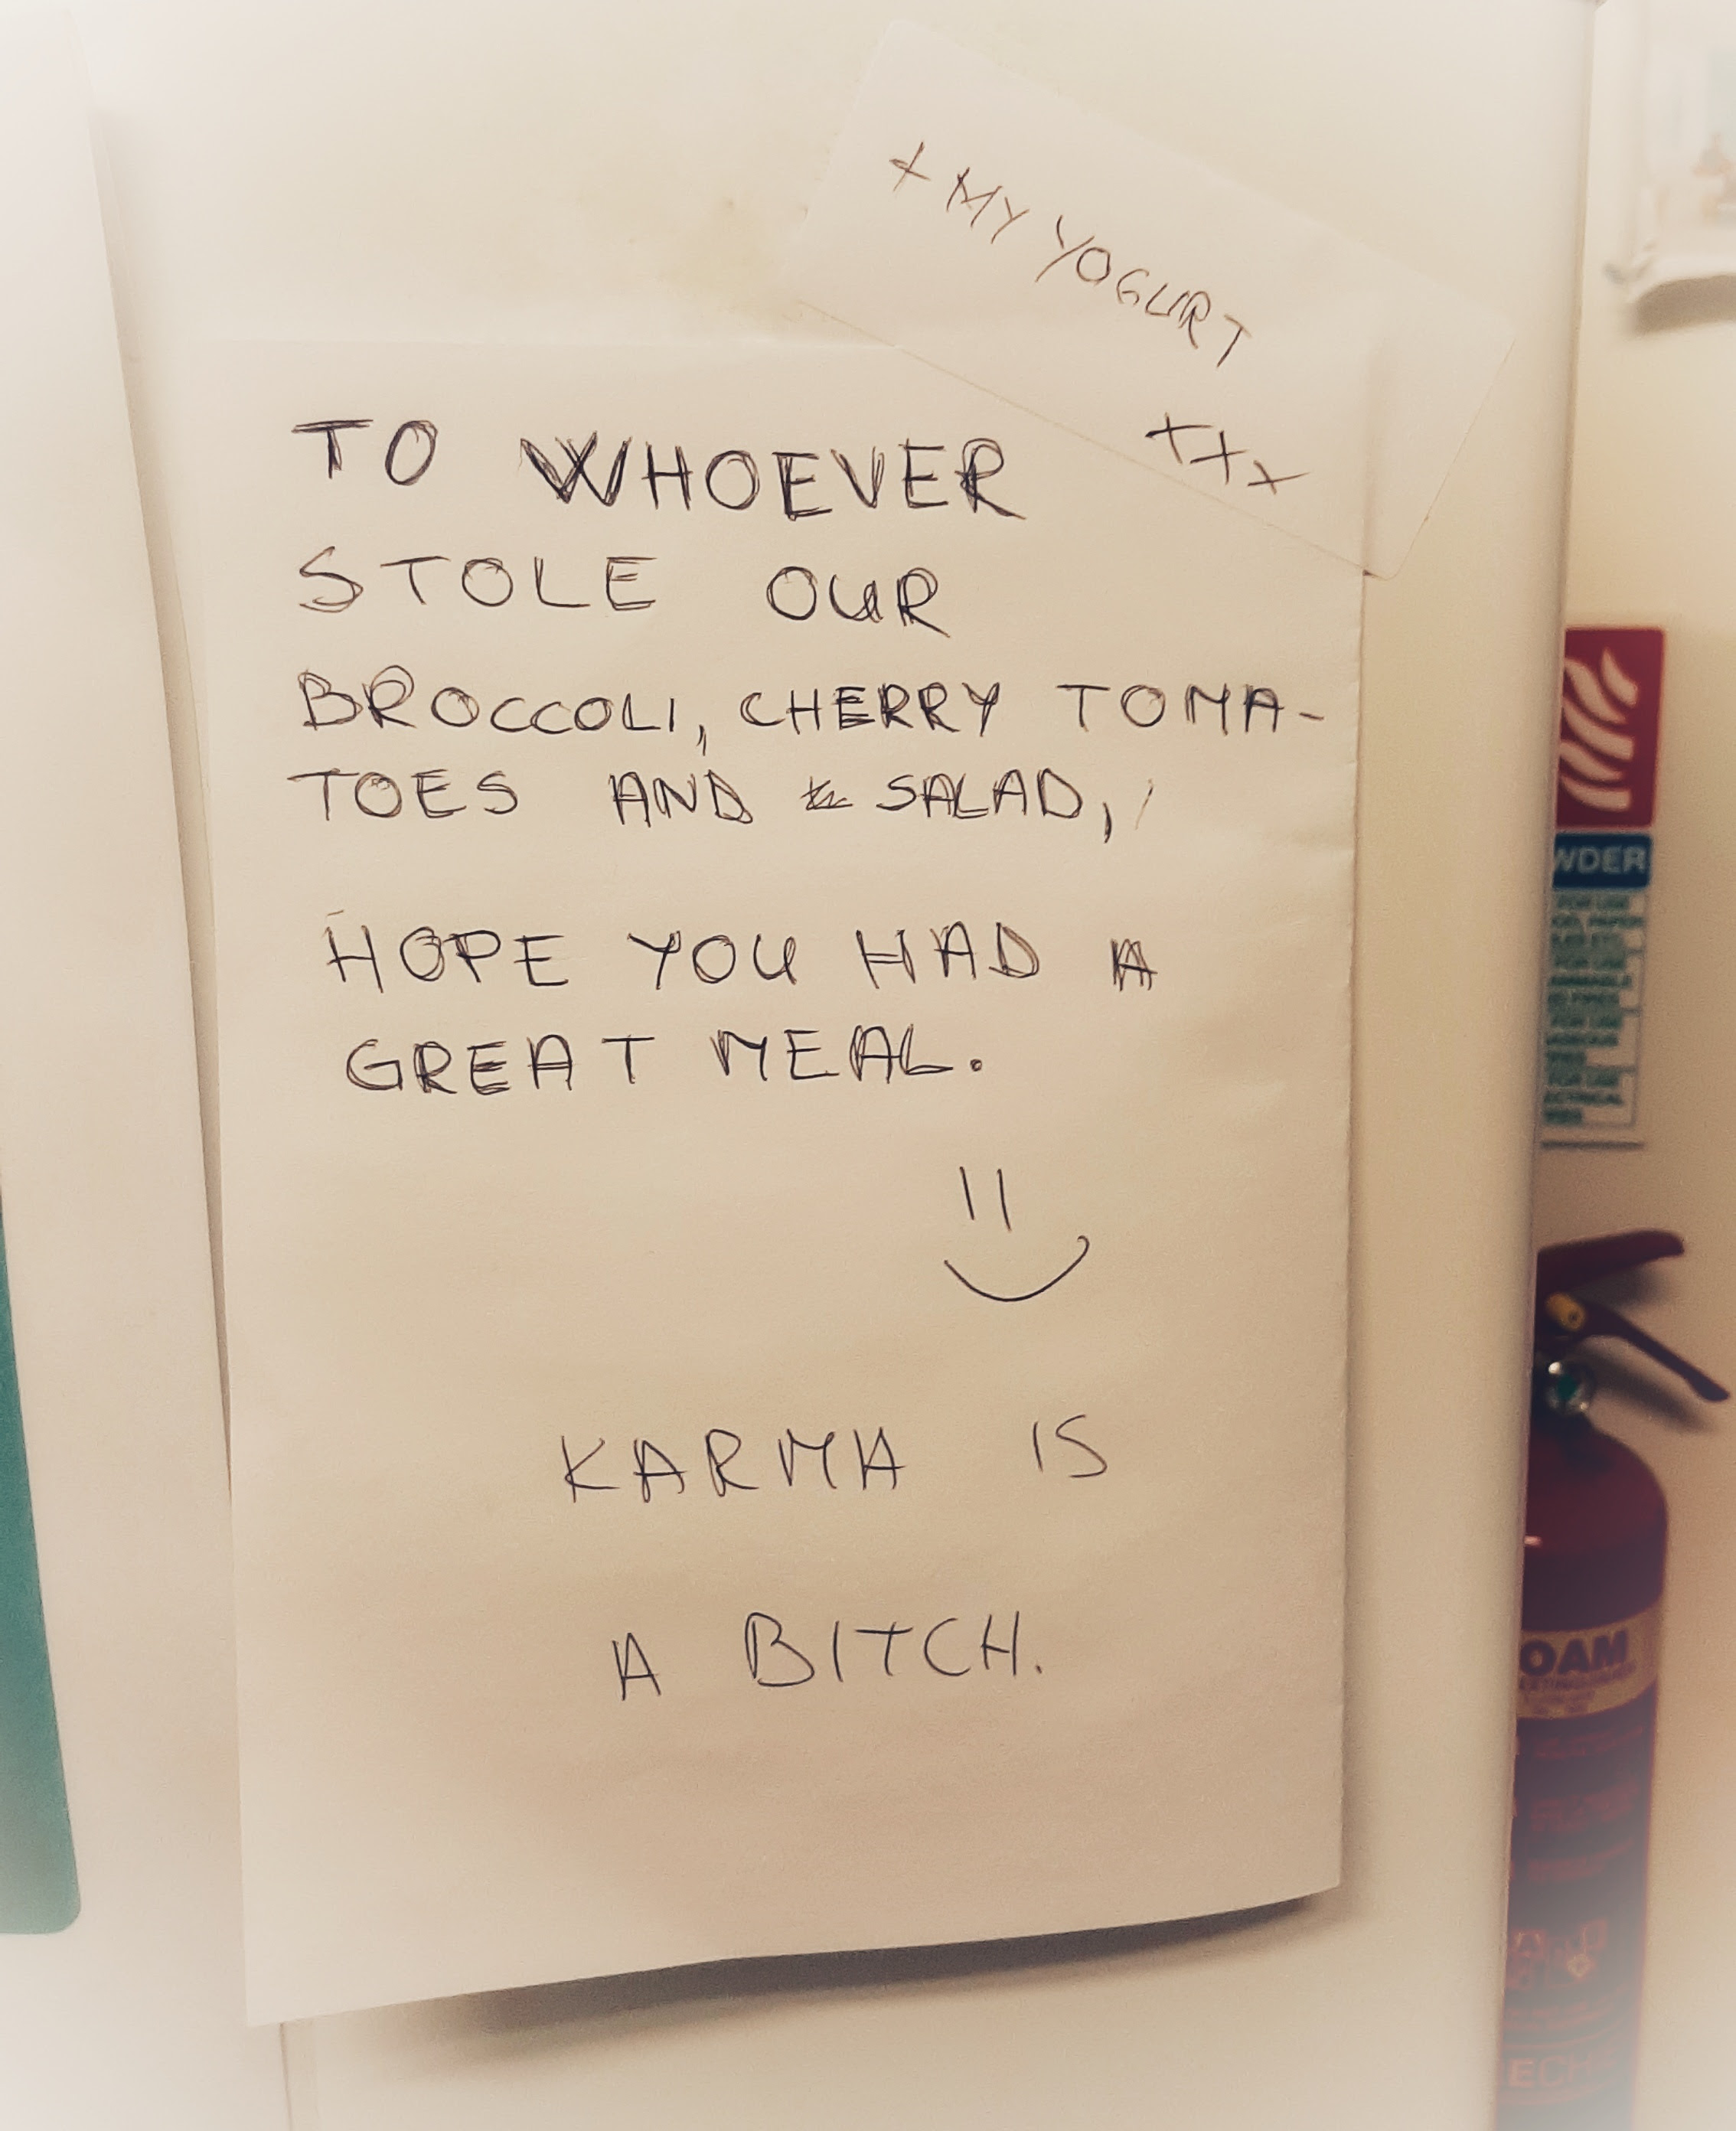 + MY YOGURT
xxx
TO WHOEVER
STOLE OUR
BROCCOLI, CHERRY TOMA-
TOES AND SALAD,
HOPE YOU HAD A
GREAT MEAL.
KARMA IS
A BITCH.
WDER
OAM